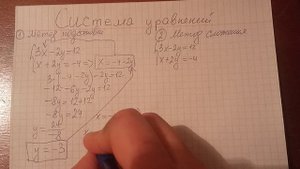 Система уравнений
① Метод подстановки
3x-2y=12
x+2y=-4 => x=-4-2y
3(-4-2y)-2y=12
-12-6y-2y=12
-8y=12+12
-8y=24
y=
y=-3
② Метод сложения
3x-2y=12
x+2y=-4